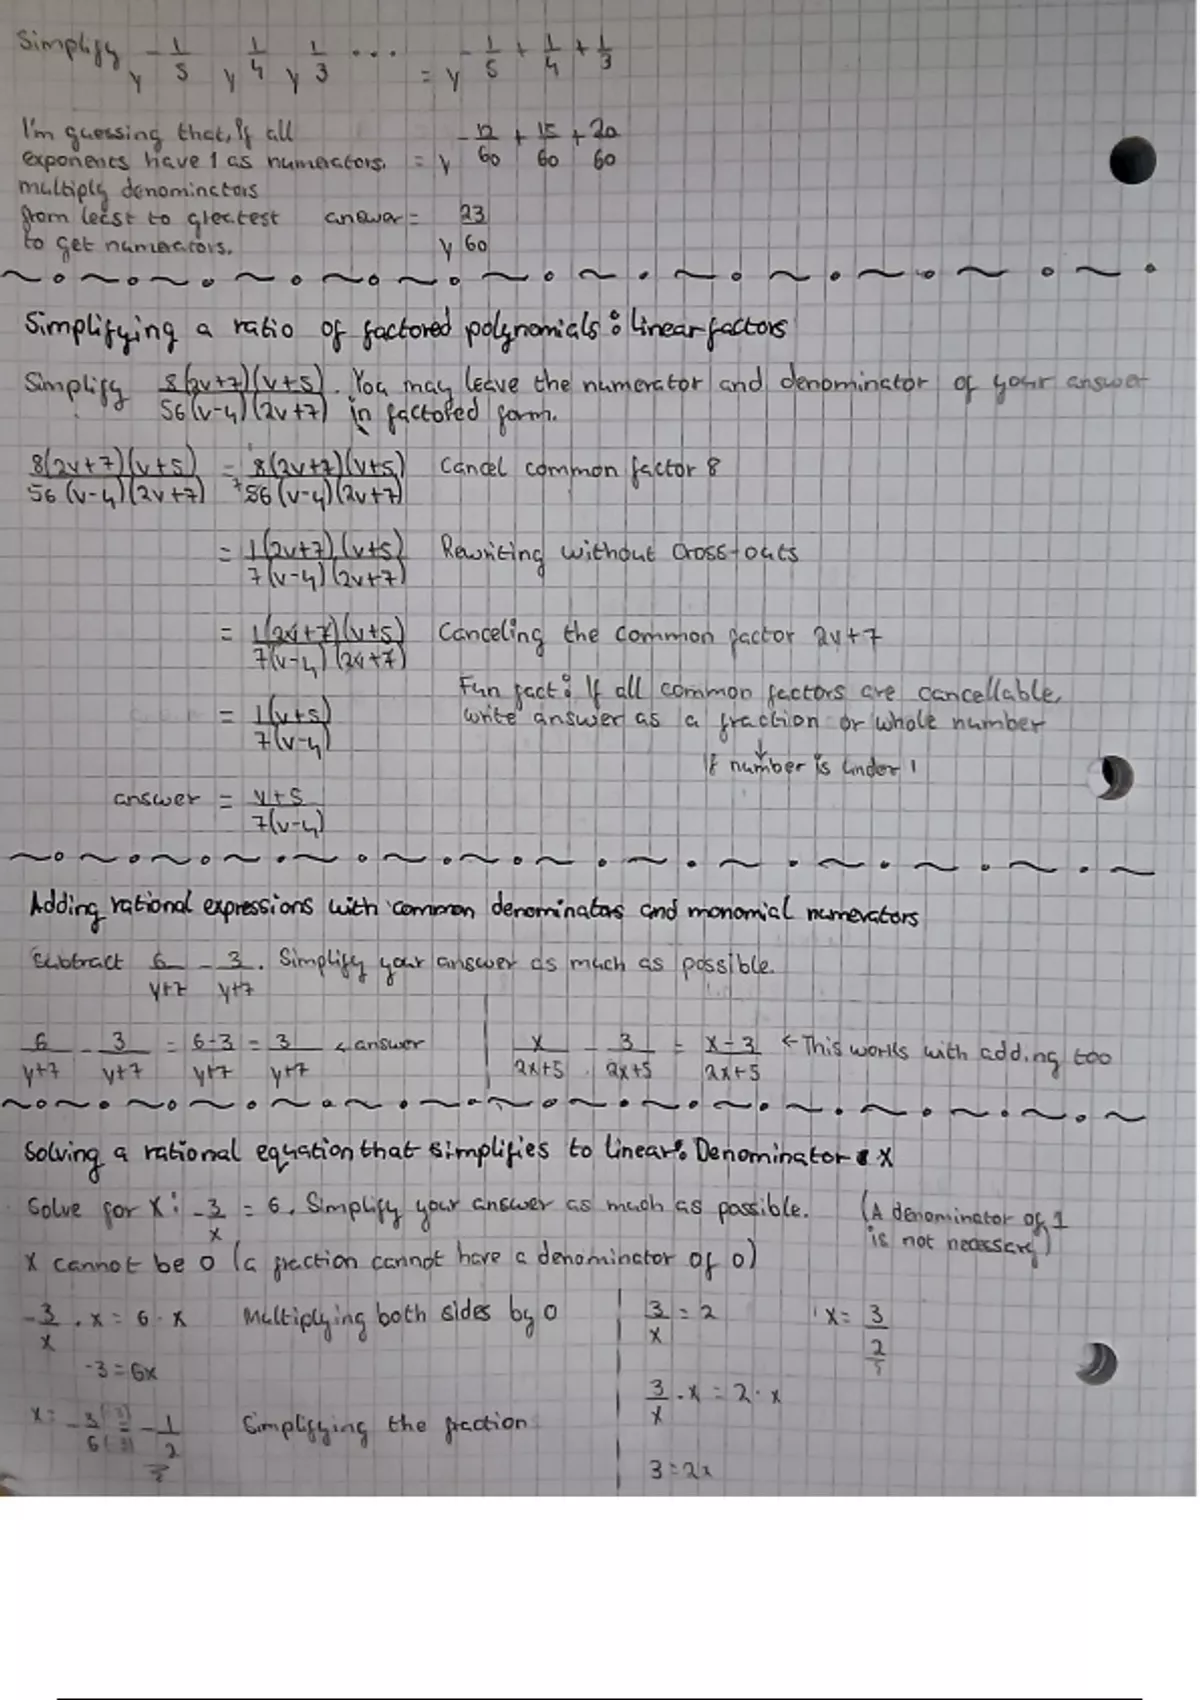 Simplify y -1/5 y 1/4 y 1/3 ... = y -1/5 + 1/4 + 1/3
I'm guessing that, if all
exponents have 1 as numerators. = y -12/60 + 15/60 + 20/60
multiply denominators
from least to greatest answer = y 23/60
to get numerators.
Simplifying a ratio of factored polynomials: linear factors
Simplify 8(2v+7)(v+5)/56(v-4)(2v+7). You may leave the numerator and denominator of your answer
in factored form.
8(2v+7)(v+5)/56(v-4)(2v+7) = 8(2v+7)(v+5)/7 56(v-4)(2v+7) Cancel common factor 8
= 1(2v+7)(v+5)/7(v-4)(2v+7) Rewriting without cross-outs
= 1(2v+7)(v+5)/7(v-4)(2v+7) Canceling the common factor 2v+7
Fun fact: If all common factors are cancellable,
= 1(v+5)/7(v-4) write answer as a fraction or whole number
↓
If number is under 1
answer = v+5/7(v-4)
Adding rational expressions with common denominators and monomial numerators
Subtract 6/y+7 - 3/y+7. Simplify your answer as much as possible.
6/y+7 - 3/y+7 = 6-3/y+7 = 3/y+7 ← answer | x/2x+5 - 3/2x+5 = x-3/2x+5 ← This works with adding too
Solving a rational equation that simplifies to linear: Denominator x
Solve for x: -3/x = 6. Simplify your answer as much as possible. (A denominator of 1
is not necessary)
x cannot be 0 (a fraction cannot have a denominator of 0)
-3/x · x = 6 · x Multiplying both sides by 0
-3 = 6x
x = -3/6 = -1/2 Simplifying the fraction
3/x = 2 x = 3/2
3/x · x = 2 · x
3 = 2x